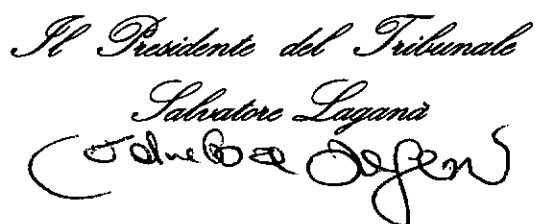 Il Presidente del Tribunale
Salvatore Laganà